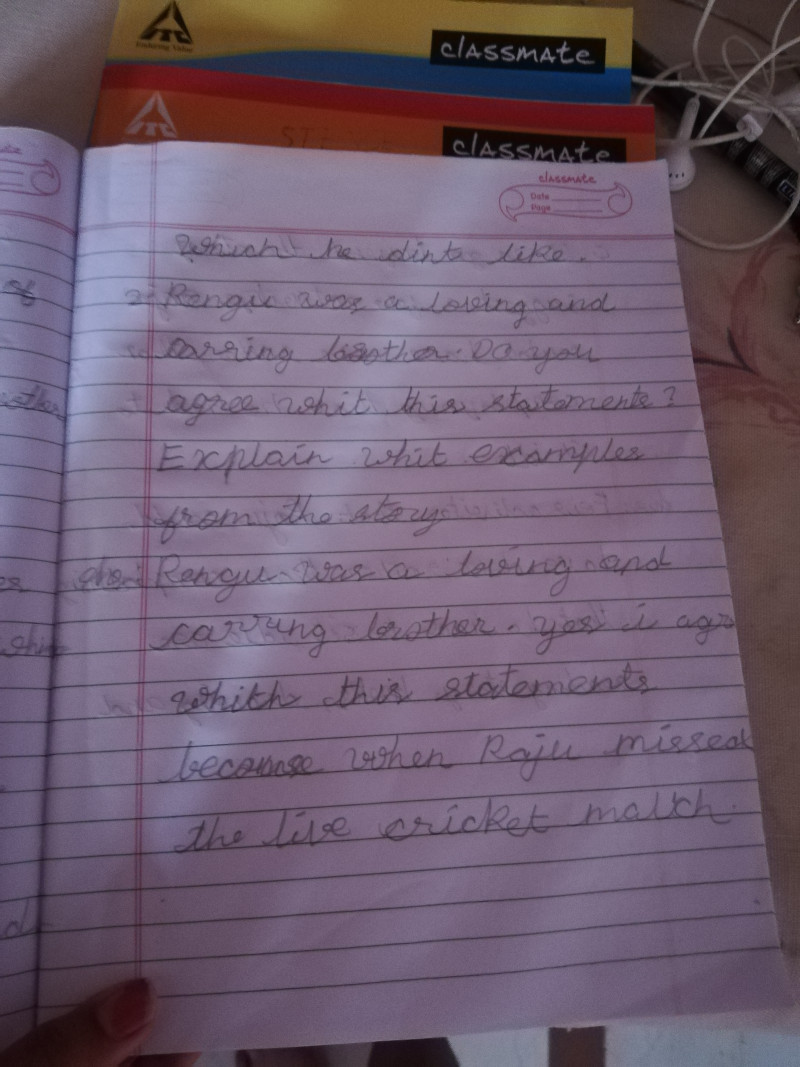 classmate
classmate
classmate
Date
Page
which he dint like.
2. Rengu was a loving and
carring brother. Do you
agree whit this statements?
Explain whit examples
from the story
Rengu was a loving and
carrung brother. yes i agr
whith this statements
because when Raju missed
the live cricket match.